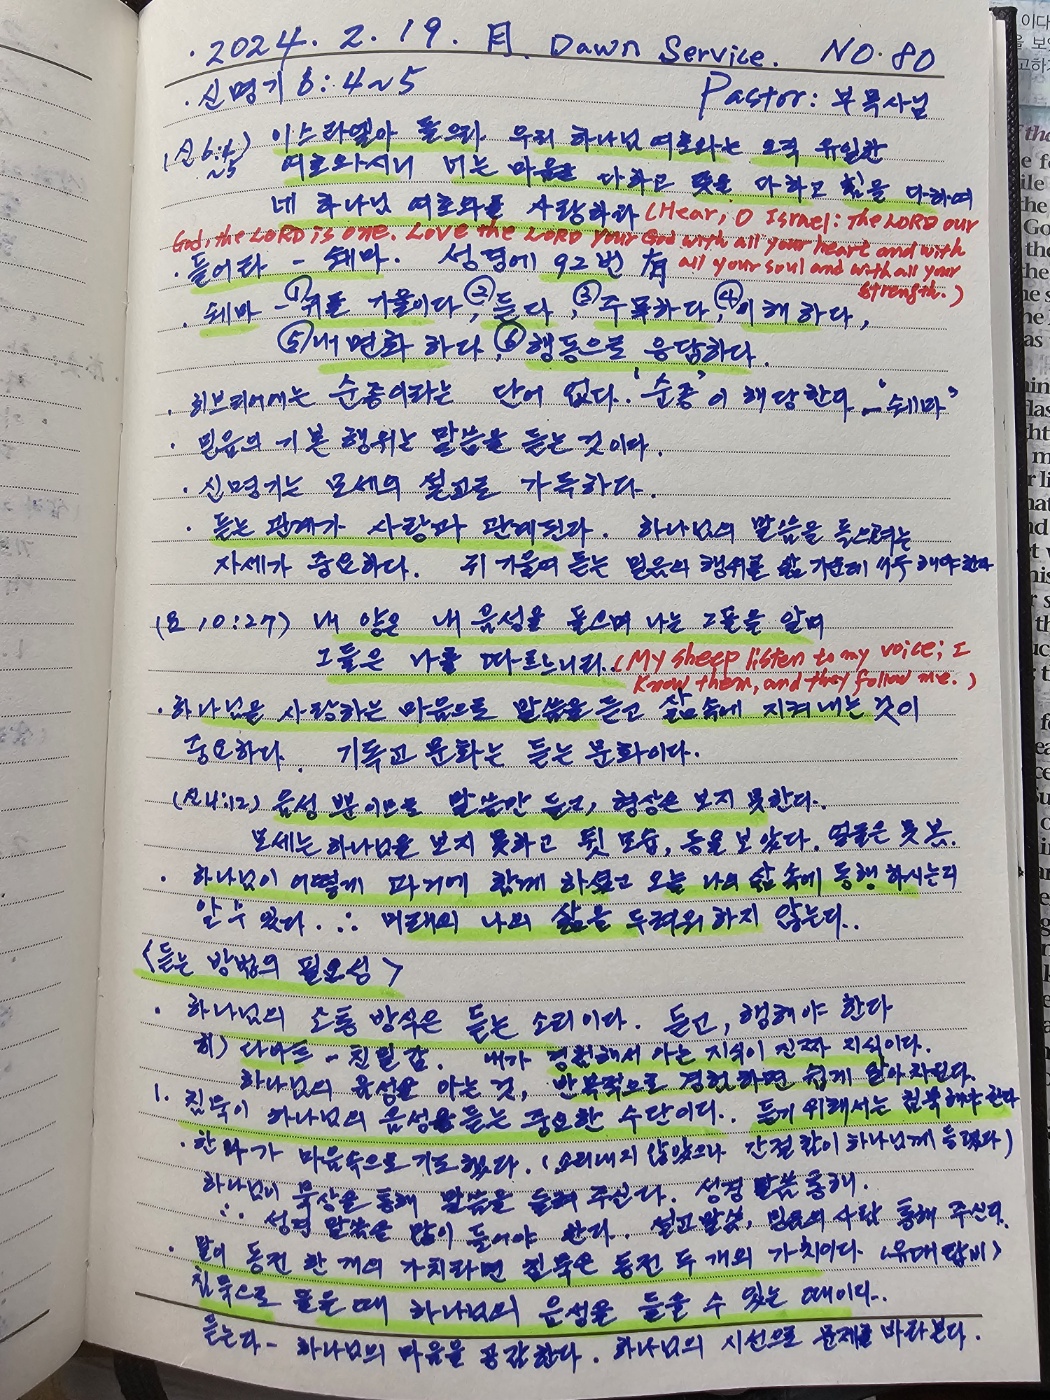 · 2024. 2. 19. 月. Dawn Service. NO. 80
· 신명기 6:4~5 Pastor: 부목사님
(신6:4~5) 이스라엘아 들으라 우리 하나님 여호와는 오직 유일한
여호와시니 너는 마음을 다하고 뜻을 다하고 힘을 다하여
네 하나님 여호와를 사랑하라 (Hear, O Israel: The LORD our
God, the LORD is one. Love the LORD your God with all your heart and with
all your soul and with all your
strength.)
· 들어라 - 쉐마. 성경에 92번 有
· 쉐마 - ① 귀를 기울이다, ② 듣다, ③ 주목하다, ④ 이해하다,
⑤ 내면화 하다, ⑥ 행동으로 응답하다.
· 히브리어에는 순종이라는 단어 없다. '순종'이 해당한다. - "쉐마"
· 믿음의 기본 행위는 말씀을 듣는 것이다.
· 신명기는 모세의 설교로 가득하다.
· 듣는 관계가 사랑과 관계된다. 하나님의 말씀을 들으려는
자세가 중요하다. 귀 기울여 듣는 믿음의 행위를 삶 가운데 해야 한다
(요 10:27) 내 양은 내 음성을 들으며 나는 그들을 알며
그들은 나를 따르느니라. (My sheep listen to my voice; I
know them, and they follow me.)
· 하나님을 사랑하는 마음으로 말씀을 듣고 삶 속에 지켜 내는 것이
중요하다. 기독교 문화는 듣는 문화이다.
(신4:12) 음성 뿐이므로 말씀만 듣고, 형상은 보지 못한다.
모세는 하나님을 보지 못하고 뒷 모습, 등을 보았다. 얼굴은 못 봄.
· 하나님이 어떻게 과거에 함께 하셨고 오늘 나의 삶 속에 동행 하시는지
알 수 있다. ∴ 미래의 나의 삶을 두려워 하지 않는다..
<듣는 방법의 필요성>
· 하나님의 소통 방식은 듣는 소리이다. 듣고, 행해야 한다
히) 다바르 - 친밀감. 내가 경험해서 아는 지식이 진짜 지식이다.
하나님의 음성을 아는 것, 반복적으로 경험하면 쉽게 알아 차린다.
1. 침묵이 하나님의 음성을 듣는 중요한 수단이다. 듣기 위해서는 침묵해야 한다
· 한나가 마음속으로 기도했다. (소리내지 않았으나 간절함이 하나님께 들렸다)
하나님이 묵상을 통해 말씀을 들려 주신다. 성경 말씀 통해.
∴ 성경 말씀을 많이 들어야 한다. 설교말씀, 믿음의 사람 통해 주신다.
· 말이 동전 한 개의 가치라면 침묵은 동전 두 개의 가치이다 (유대랍비)
침묵으로 들을 때 하나님의 음성을 들을 수 있는 때이다..
듣는다 - 하나님의 마음을 공감한다. 하나님의 시선으로 문제를 바라본다.